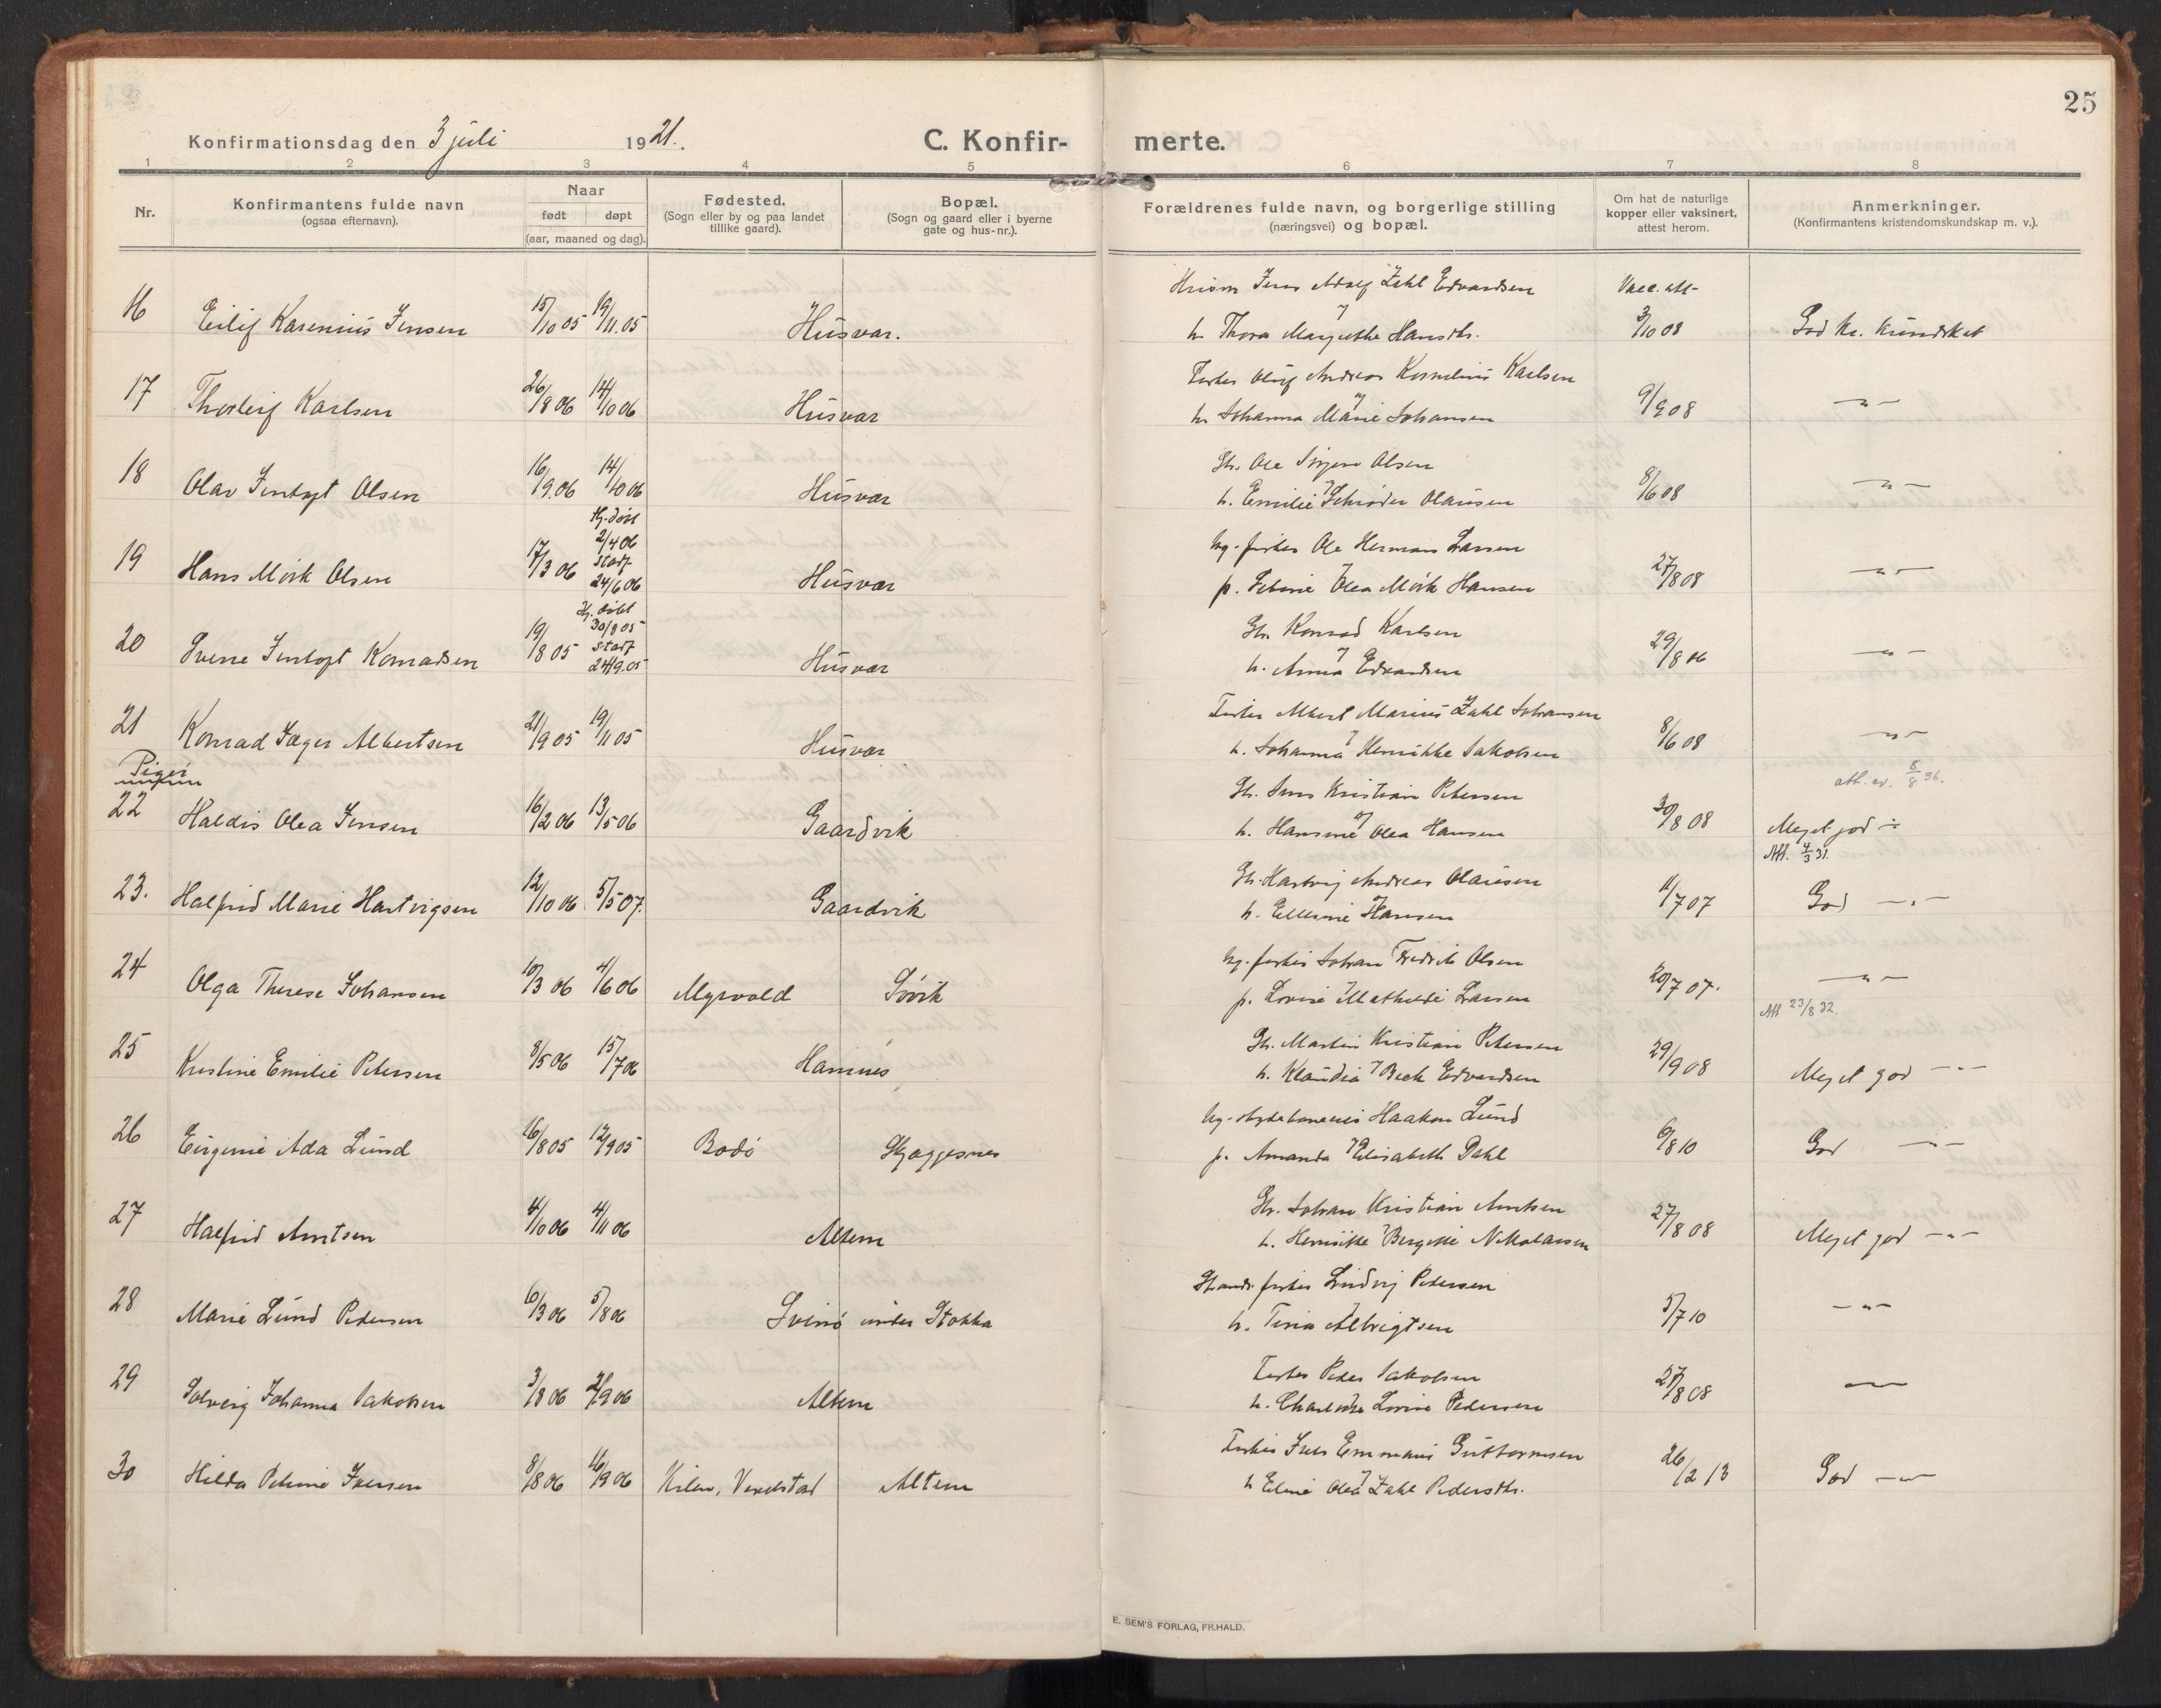 25
Konfirmationsdag den 3 juli 1921.
C. Konfirmerte.
1 2 3 4 5 6 7 8
Nr.
Konfirmantens fulde navn
(ogsaa efternavn).
Naar
født døpt
(aar, maaned og dag).
Fødested.
(Sogn eller by og paa landet
tillike gaard).
Bopæl.
(Sogn og gaard eller i byerne
gate og hus-nr.).
Forældrenes fulde navn, og borgerlige stilling
(næringsvei) og bopæl.
Om hat de naturlige
kopper eller vaksinert,
attest herom.
Anmerkninger.
(Konfirmantens kristendomskundskap m. v.).
Jens Adolf Zahl Edvardsen Vacc. att-
16 Eilif Karenius Jensen 15/10 05 19/11.05 Husvær. h. Thora Margrethe Hansdtr. 3/10 08 God kr. kundskab
Fisker Oluf Andreas Kornelius Karlsen
17 Thorleif Karlsen 26/8 06 14/10 06 Husvær h. Johanna Marie Johansen 9/9 08 -"-
Gbr. Ole Olsen
18 Olav Olsen 16/9.06 14/10 06 Husvær h. Emilie Schrøder Olausen 8/6 08 -"-
Hj. døbt
2/4 06
Stadf
24/6 06
Ug. fisker Ole Herman Larsen
19 Hans Mørk Olsen 17/3 06 Husvær p. Olea Mørk Hansen 27/8 08 -"-
Hj. døbt
30/8 05
Stadf
24/9.05
Gbr. Konrad Karlsen
20 Sverre Konradsen 19/8 05 Husvær h. Anna Edvardsen 29/8 06 -"-
Fisker Albert Marius Zahl Johansen
21 Konrad Jæger Albertsen 21/9 05 19/11 05 Husvær h. Johanna Henrikke Jakobsen 8/6 08 -"-
Piger
att. av. 8/8 36.
Gbr. Jens Kristian Petersen
22 Haldis Olea Jensen 16/2 06 13/5 06 Gaardvik h. Hansine Olea Hansen 30/8 08 Meget god -"-
Att. 4/3 31.
Gbr. Hartvig Andreas Olausen
23. Halfrid Marie Hartvigsen 12/10 06 5/5 07. Gaardvik h. Ellerine Hansen 11/7 07 God -"-
Ug. fisker Johan Fredrik Olsen
24 Olga Therese Johansen 10/3 06 4/6 06 Myrvold Søvik p. Lovise Mathilde Larsen 20/7 07. -"-
Att 23/8 32.
Gbr. Martin Kristian Petersen
25 Kristine Emilie Petersen 8/5 06 15/7 06 Hamnes h. Klaudia Beck Edvardsen 29/9 08 Meget god -"-
Haakon Lund
26 Eugenie Ada Lund 16/8 05 12/9 05 Bodø Skjeggesnes p. Amanda Elisabeth Dahl 6/8 10 God -"-
Gbr. Johan Kristian Arntsen
27 Halfrid Arntsen 4/10 06 4/11 06 Altern h. Henrikke Bergitte Nikolaisen 27/8 08 Meget god -"-
Strands. fisker Ludvig Pedersen
28 Marie Lund Pedersen 6/3 06 5/8 06 Svinø under Stokka h. Tina Albrigtsen 5/7 10 -"-
Fisker Peder Jakobsen
29 Solveig Johanna Jakobsen 3/8 06 2/9 06 Altern h. Charlotte Lovise Pedersen 27/8 08 -"-
Fisker Iver Emmanus Guttormsen
30 Hilda Petrine Iversen 8/8 06 16/9 06 Kilen, Vevelstad Altern h. Eline Olea Zahl Pedersdtr. 26/2 13 God -"-
E. SEM'S FORLAG, FR.HALD.